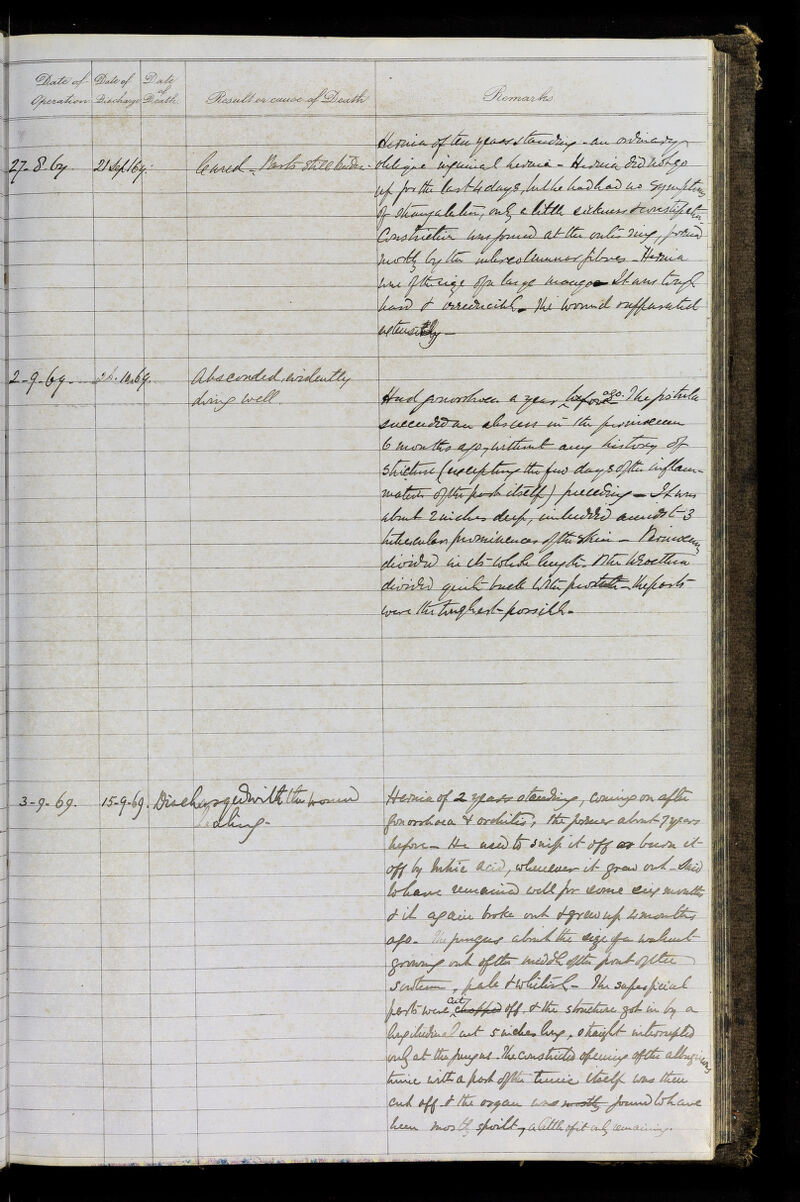 Date of Operation
Date of Discharge
Date of Death
Result or cause of Death
Remarks
27-8-69
21 Sept/69.
Cured - Parts still tender.
Hernia of ten years standing - an ordinary
oblique inguinal hernia - Hernia did not go
up for the last 4 days, but he had had no symptoms
of strangulation, only a little sickness & constipation
Constriction was found at the outer ring, formed
mostly by the intercolumnar fibres - Hernia
was of the size of a large mango - It was tough
hard & irreducible - The wound suppurated
extensively -
2-9-69
10.69.
Absconded, evidently
doing well.
Had gonorrhoea a year before ago. The fistula
succeeded an abscess in the perineum
6 months ago, without any history of
stricture (excepting the few days of the inflam-
mation of the part itself) preceding - It was
about 2 inches deep, imbedded amidst 3
tubercular prominences of the skin - Perineum
divided in its whole length & the urethra
divided quite back to the prostate - the parts
were the toughest possible.
3-9-69.
15-9-69.
Discharged with the wound
healing.
Hernia of 2 years standing, coming on after
gonorrhoea & orchitis, the former about 7 years
before - He used to snip it off or burn it
off by Nitric acid, whenever it grew out - Said
to have remained well for some six months
& it again broke out & grew up 4 months
ago. The fungus about the size of a walnut
growing out of the middle of the front of the
scrotum, pale & whitish - The superficial
parts were chopped cut off & the structure got in by a
longitudinal cut 5 inches long, straight interrupted
only at the fungus. The constricted opening of the albuginous
tunic with a part of the tunic itself was then
cut off & the organ was mostly found to have
been mostly spoilt, a little of it only remaining.